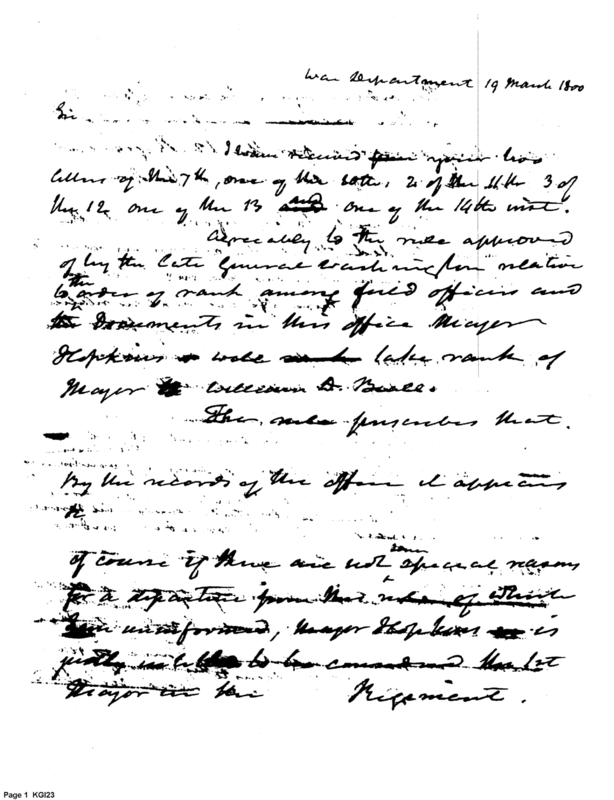 War Department 19 March 1800
Sir
I have received your two
letters of the 7th, one of the 10th, 2 of the 11th 3 of
the 12 one of the 13 and one of the 14th inst.
Agreeably to the rule approved
of by the late General Washington relative
to the order of rank among field officers and
the Documents in this office Major
Hopkins will take rank of
Major William D. Beall.
The rule prescribes that.
By the records of the office it appears
of course if there are not some special reasons
for a departure from this rule of which
I am uninformed, Major Hopkins is
justly to be considered the 1st
Major in the Regiment.
Page 1 KGI23